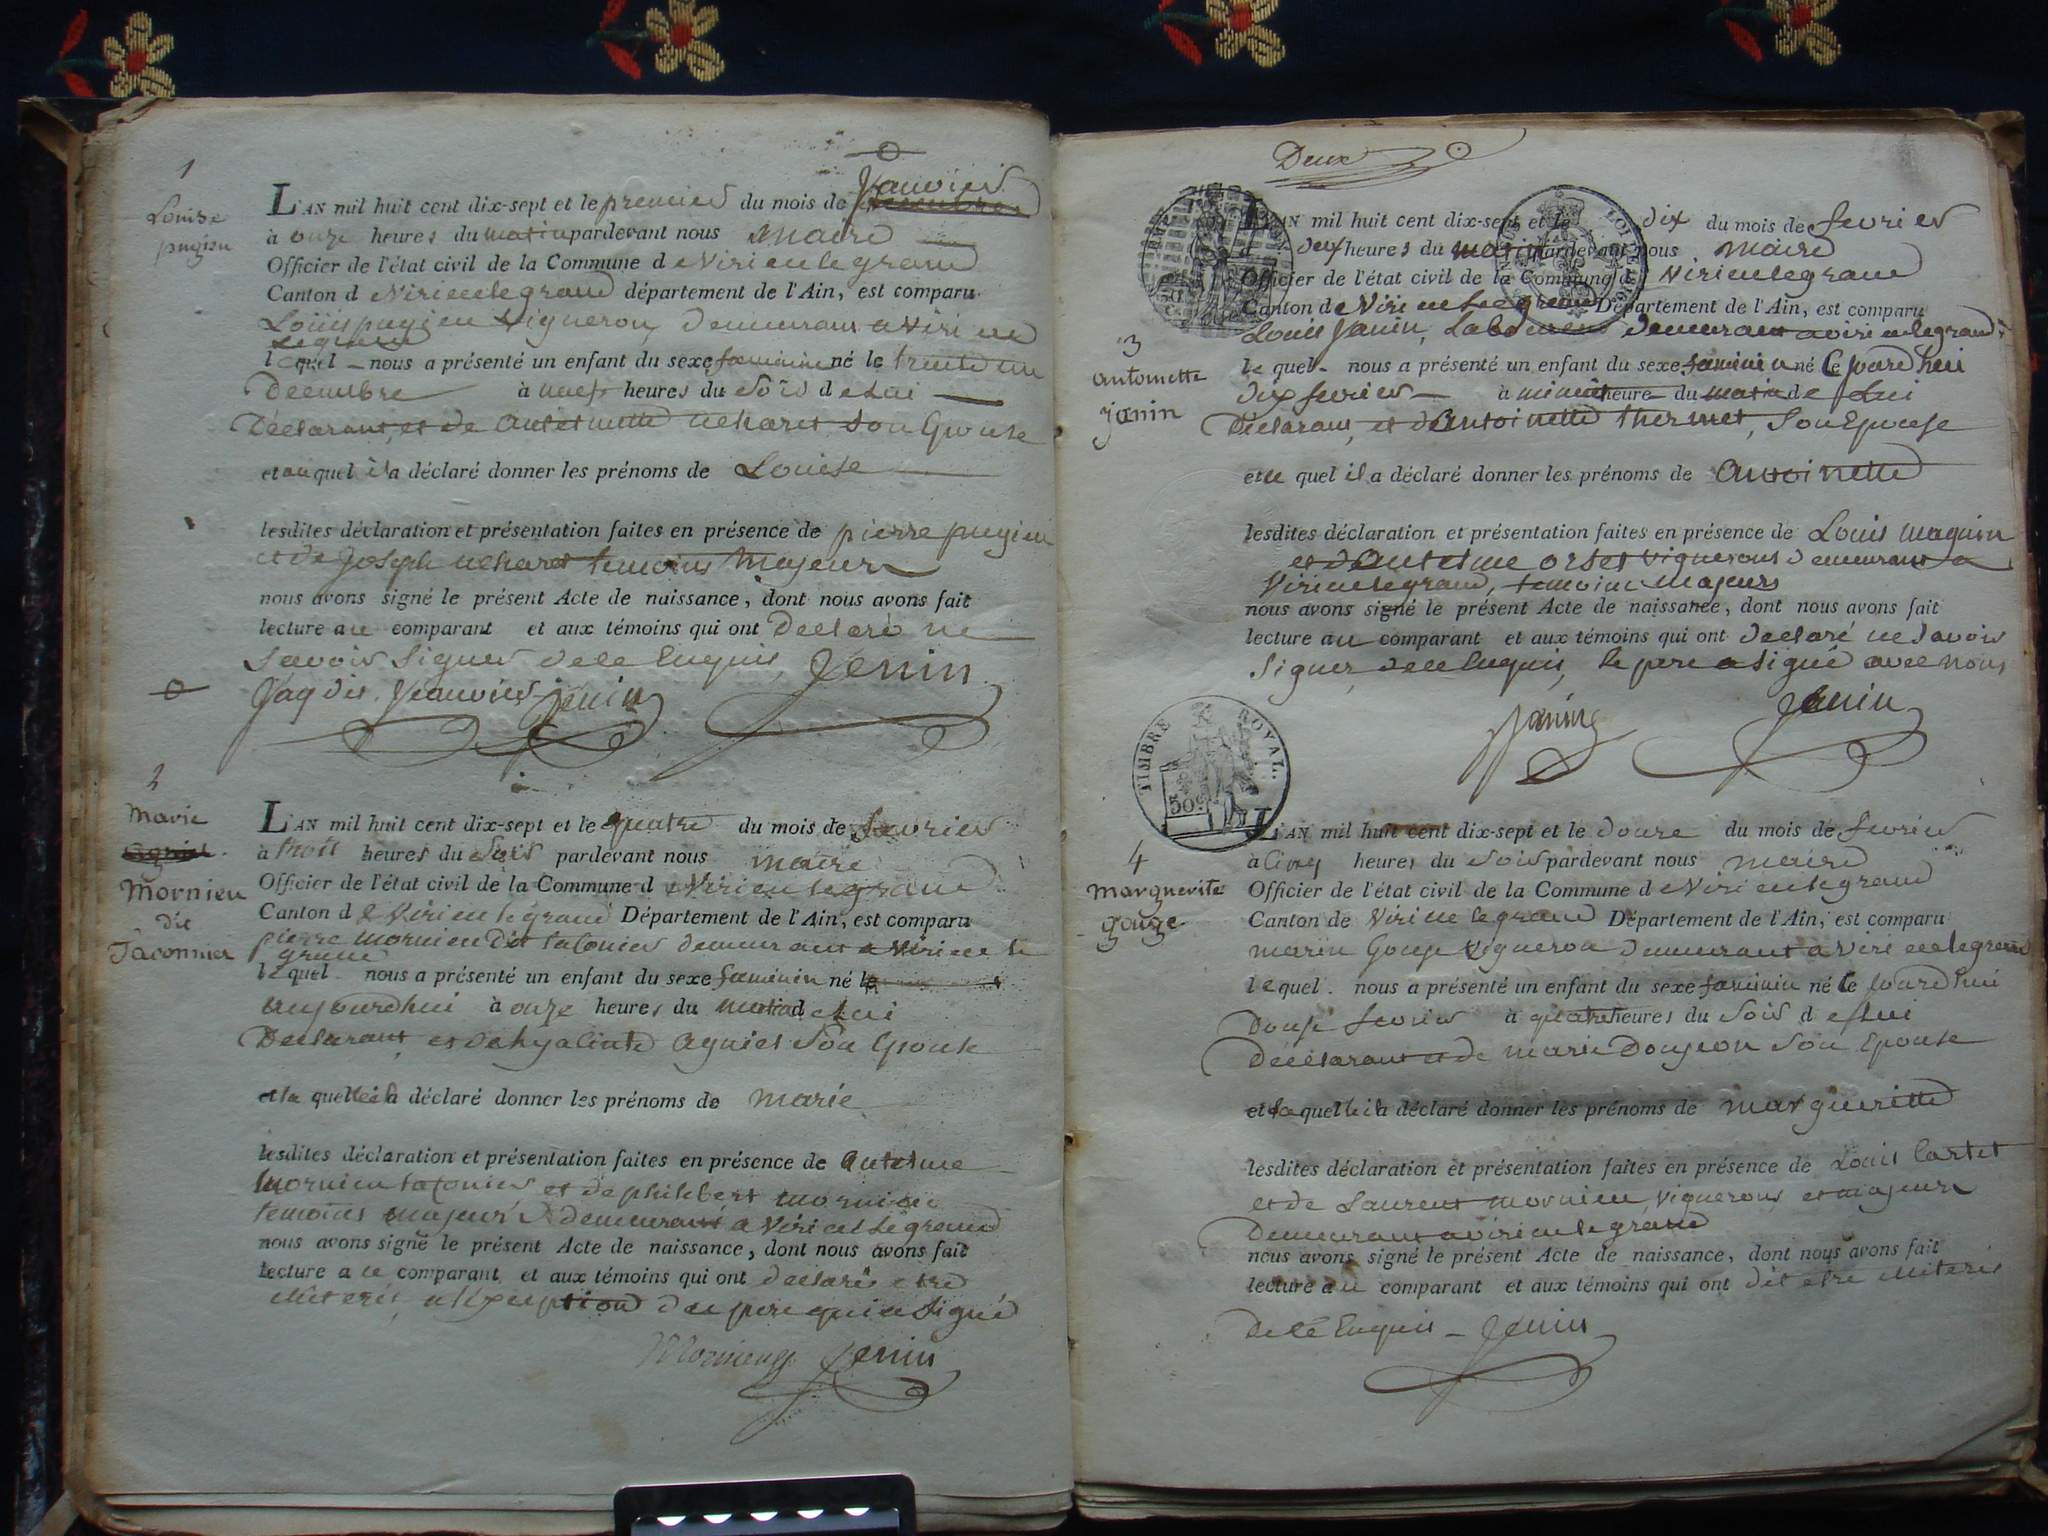 1
Louise
pugieu
Janvier
L'AN mil huit cent dix-sept et le premier du mois de
à onze heures du matin pardevant nous Maire
Officier de l'état civil de la Commune de Virieulegrand
Canton de Virieulegrand département de l'Ain, est comparu
Louis pugieu Vigneron, demeurant a Virieu
legrand
lequel nous a présenté un enfant du sexe feminin né le trente un
Decembre à neuf heures du Soir de Lui
Déclarant, et de Antelmette Son Epouse
et auquel il a déclaré donner les prénoms de Louise
lesdites déclaration et présentation faites en présence de pierre pugieu
et de Joseph temoins Majeurs
nous avons signé le présent Acte de naissance, dont nous avons fait
lecture au comparant et aux témoins qui ont Declaré ne
Savoir Signer de ce Enquis, Jenin
Janvier Jenin
2
Marie
Mornieu
dit
Taconnier
L'AN mil huit cent dix-sept et le quatre du mois de fevrier
à trois heures du Soir pardevant nous maire
Officier de l'état civil de la Commune de Virieulegrand
Canton de Virieulegrand Département de l'Ain, est comparu
pierre Mornieu Dit taconier demeurant a Virieu le
grand
lequel nous a présenté un enfant du sexe feminin né le
aujourdhui à onze heures du matin de Lui
Déclarant, et de hyacinte agniel Son Epouse
et la quelle il a déclaré donner les prénoms de Marie
lesdites déclaration et présentation faites en présence de antelme
Mornieu taconier et de philibert Mornieu
temoins majeurs demeurant a Virieu Legrand
nous avons signé le présent Acte de naissance, dont nous avons fait
lecture a ce comparant et aux témoins qui ont declaré etre
illiteré, a l'exception du pere qui a Signé
Mornieu Jenin
Deux
L'AN mil huit cent dix-sept et le dix du mois de fevrier
à dix heures du matin pardevant nous Maire
Officier de l'état civil de la Commune de Virieulegrand
Canton de Virieulegrand Département de l'Ain, est comparu
Louis Janin, Laboureur demeurant a virieulegrand
3
antoinette
janin
le quel nous a présenté un enfant du sexe feminin né Cejourdhui
dix fevrier à heure du matin de Lui
Déclarant, et d'Antoinette thermet, Son Epouse
et le quel il a déclaré donner les prénoms de Antoinette
lesdites déclaration et présentation faites en présence de Louis Maguin
et d'Antelme orset vignerons demeurant a
Virieulegrand, temoins Majeurs
nous avons signé le présent Acte de naissance, dont nous avons fait
lecture au comparant et aux témoins qui ont declaré ne Savoir
Signer de ce Enquis, le pere a Signé avec nous
Janin Jenin
TIMBRE ROYAL.
50c
L'AN mil huit cent dix-sept et le douze du mois de fevrier
à Cinq heures du Soir pardevant nous Maire
4
Marguerite
gouze
Officier de l'état civil de la Commune de Virieulegrand
Canton de Virieulegrand Département de l'Ain, est comparu
marin Gouze Vigneron demeurant a Virieulegrand
lequel nous a présenté un enfant du sexe feminin né Ce jourdhui
Douze fevrier à quatre heures du Soir de Lui
Déclarant et de marie Doujeon Son Epouse
et la quelle il a déclaré donner les prénoms de Margueritte
lesdites déclaration et présentation faites en présence de Louis Cartet
et de Laurent Mornieu, vignerons et majeurs
Demeurant a virieulegrand
nous avons signé le présent Acte de naissance, dont nous avons fait
lecture au comparant et aux témoins qui ont dit etre illiteré
de ce Enquis Jenin